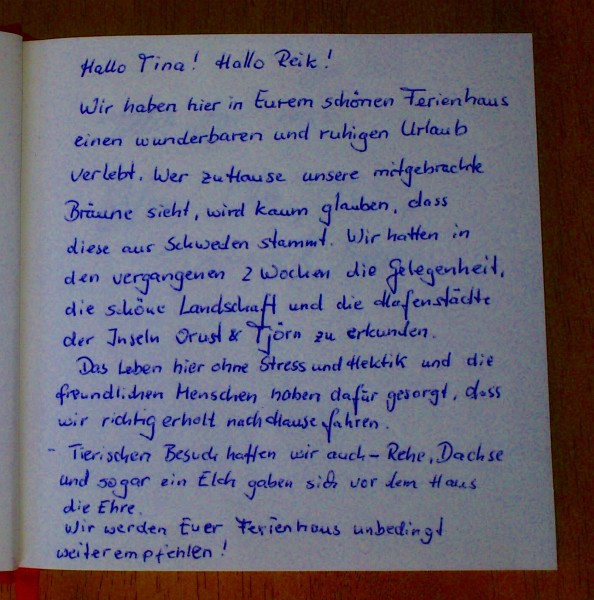 Hallo Tina! Hallo Reik!
Wir haben hier in Eurem schönen Ferienhaus
einen wunderbaren und ruhigen Urlaub
verlebt. Wer zuHause unsere mitgebrachte
Bräune sieht, wird kaum glauben, dass
diese aus Schweden stammt. Wir hatten in
den vergangenen 2 Wochen die Gelegenheit,
die schöne Landschaft und die Hafenstädte
der Inseln Orust & Tjörn zu erkunden.
Das Leben hier ohne Stress und Hektik und die
freundlichen Menschen haben dafür gesorgt, dass
wir richtig erholt nach Hause fahren.
- Tierischen Besuch hatten wir auch - Rehe, Dachse
und sogar ein Elch gaben sich vor dem Haus
die Ehre.
Wir werden Euer Ferienhaus unbedingt
weiterempfehlen!